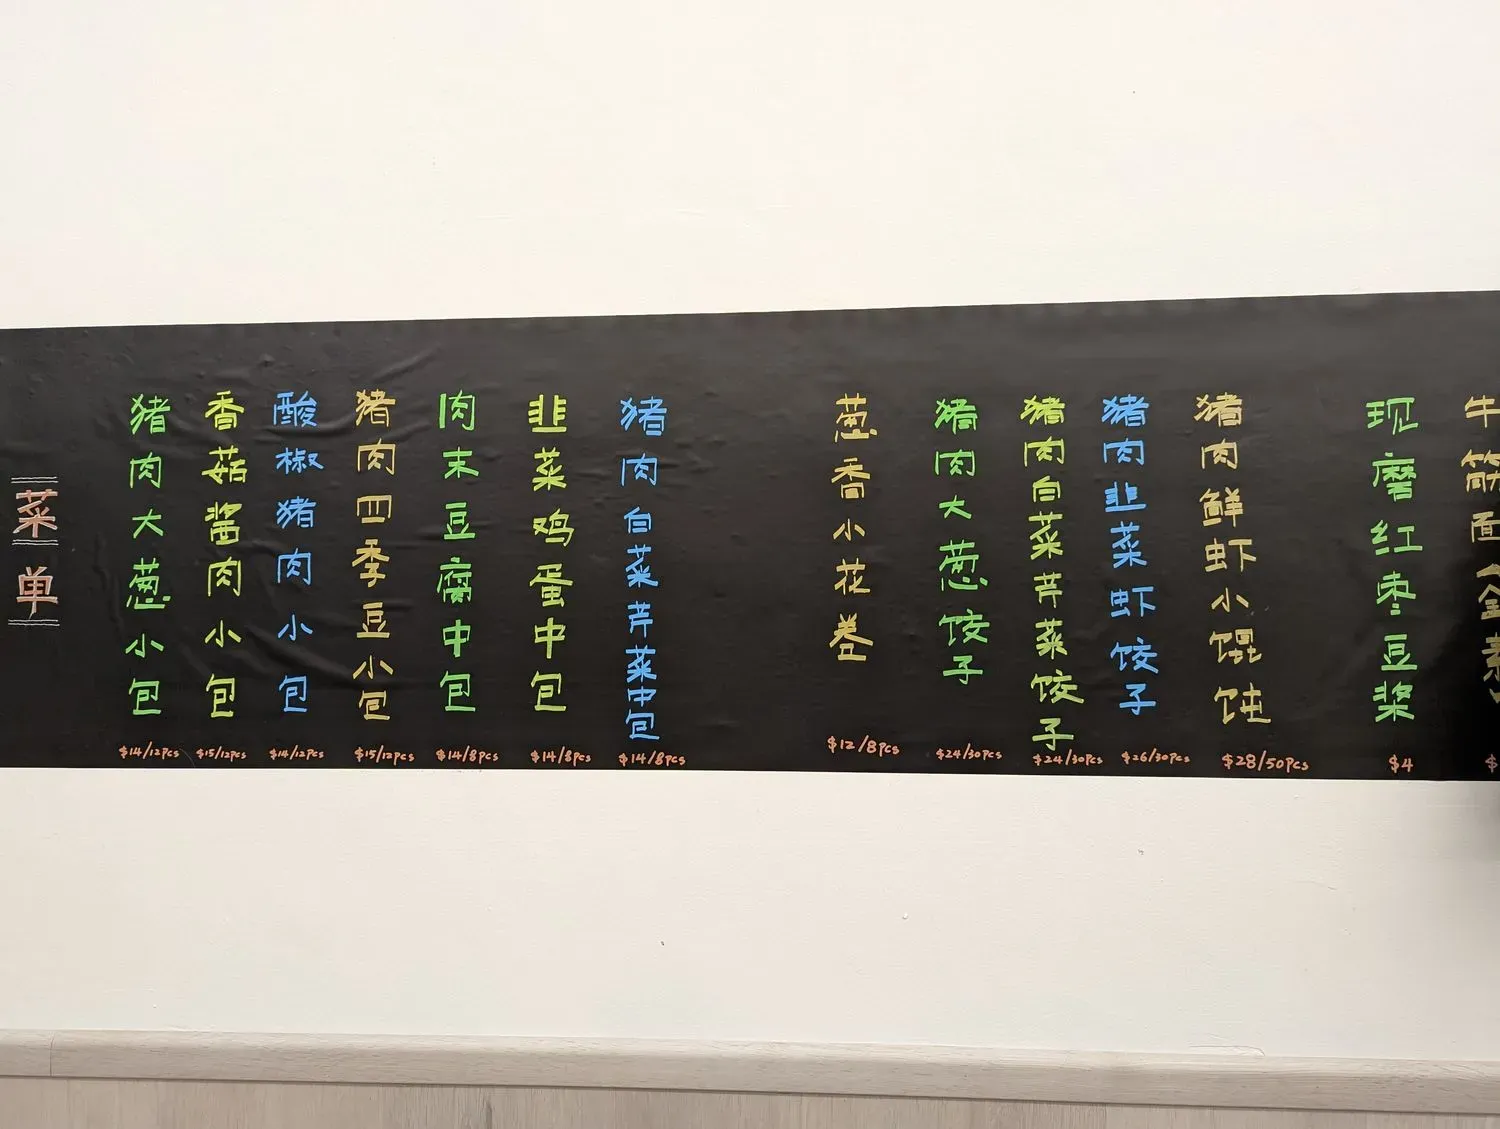 菜单
猪肉大葱小包
$14/12pcs
香菇酱肉小包
$15/12pcs
酸椒猪肉小包
$14/12pcs
猪肉四季豆小包
$15/12pcs
肉末豆腐中包
$14/8pcs
韭菜鸡蛋中包
$14/8pcs
猪肉白菜芹菜中包
$14/8pcs
葱香小花卷
$12/8pcs
猪肉大葱饺子
$24/30pcs
猪肉白菜芹菜饺子
$24/30pcs
猪肉韭菜虾饺子
$26/30pcs
猪肉鲜虾小馄饨
$28/50pcs
现磨红枣豆浆
$4
牛筋面(全素)
$